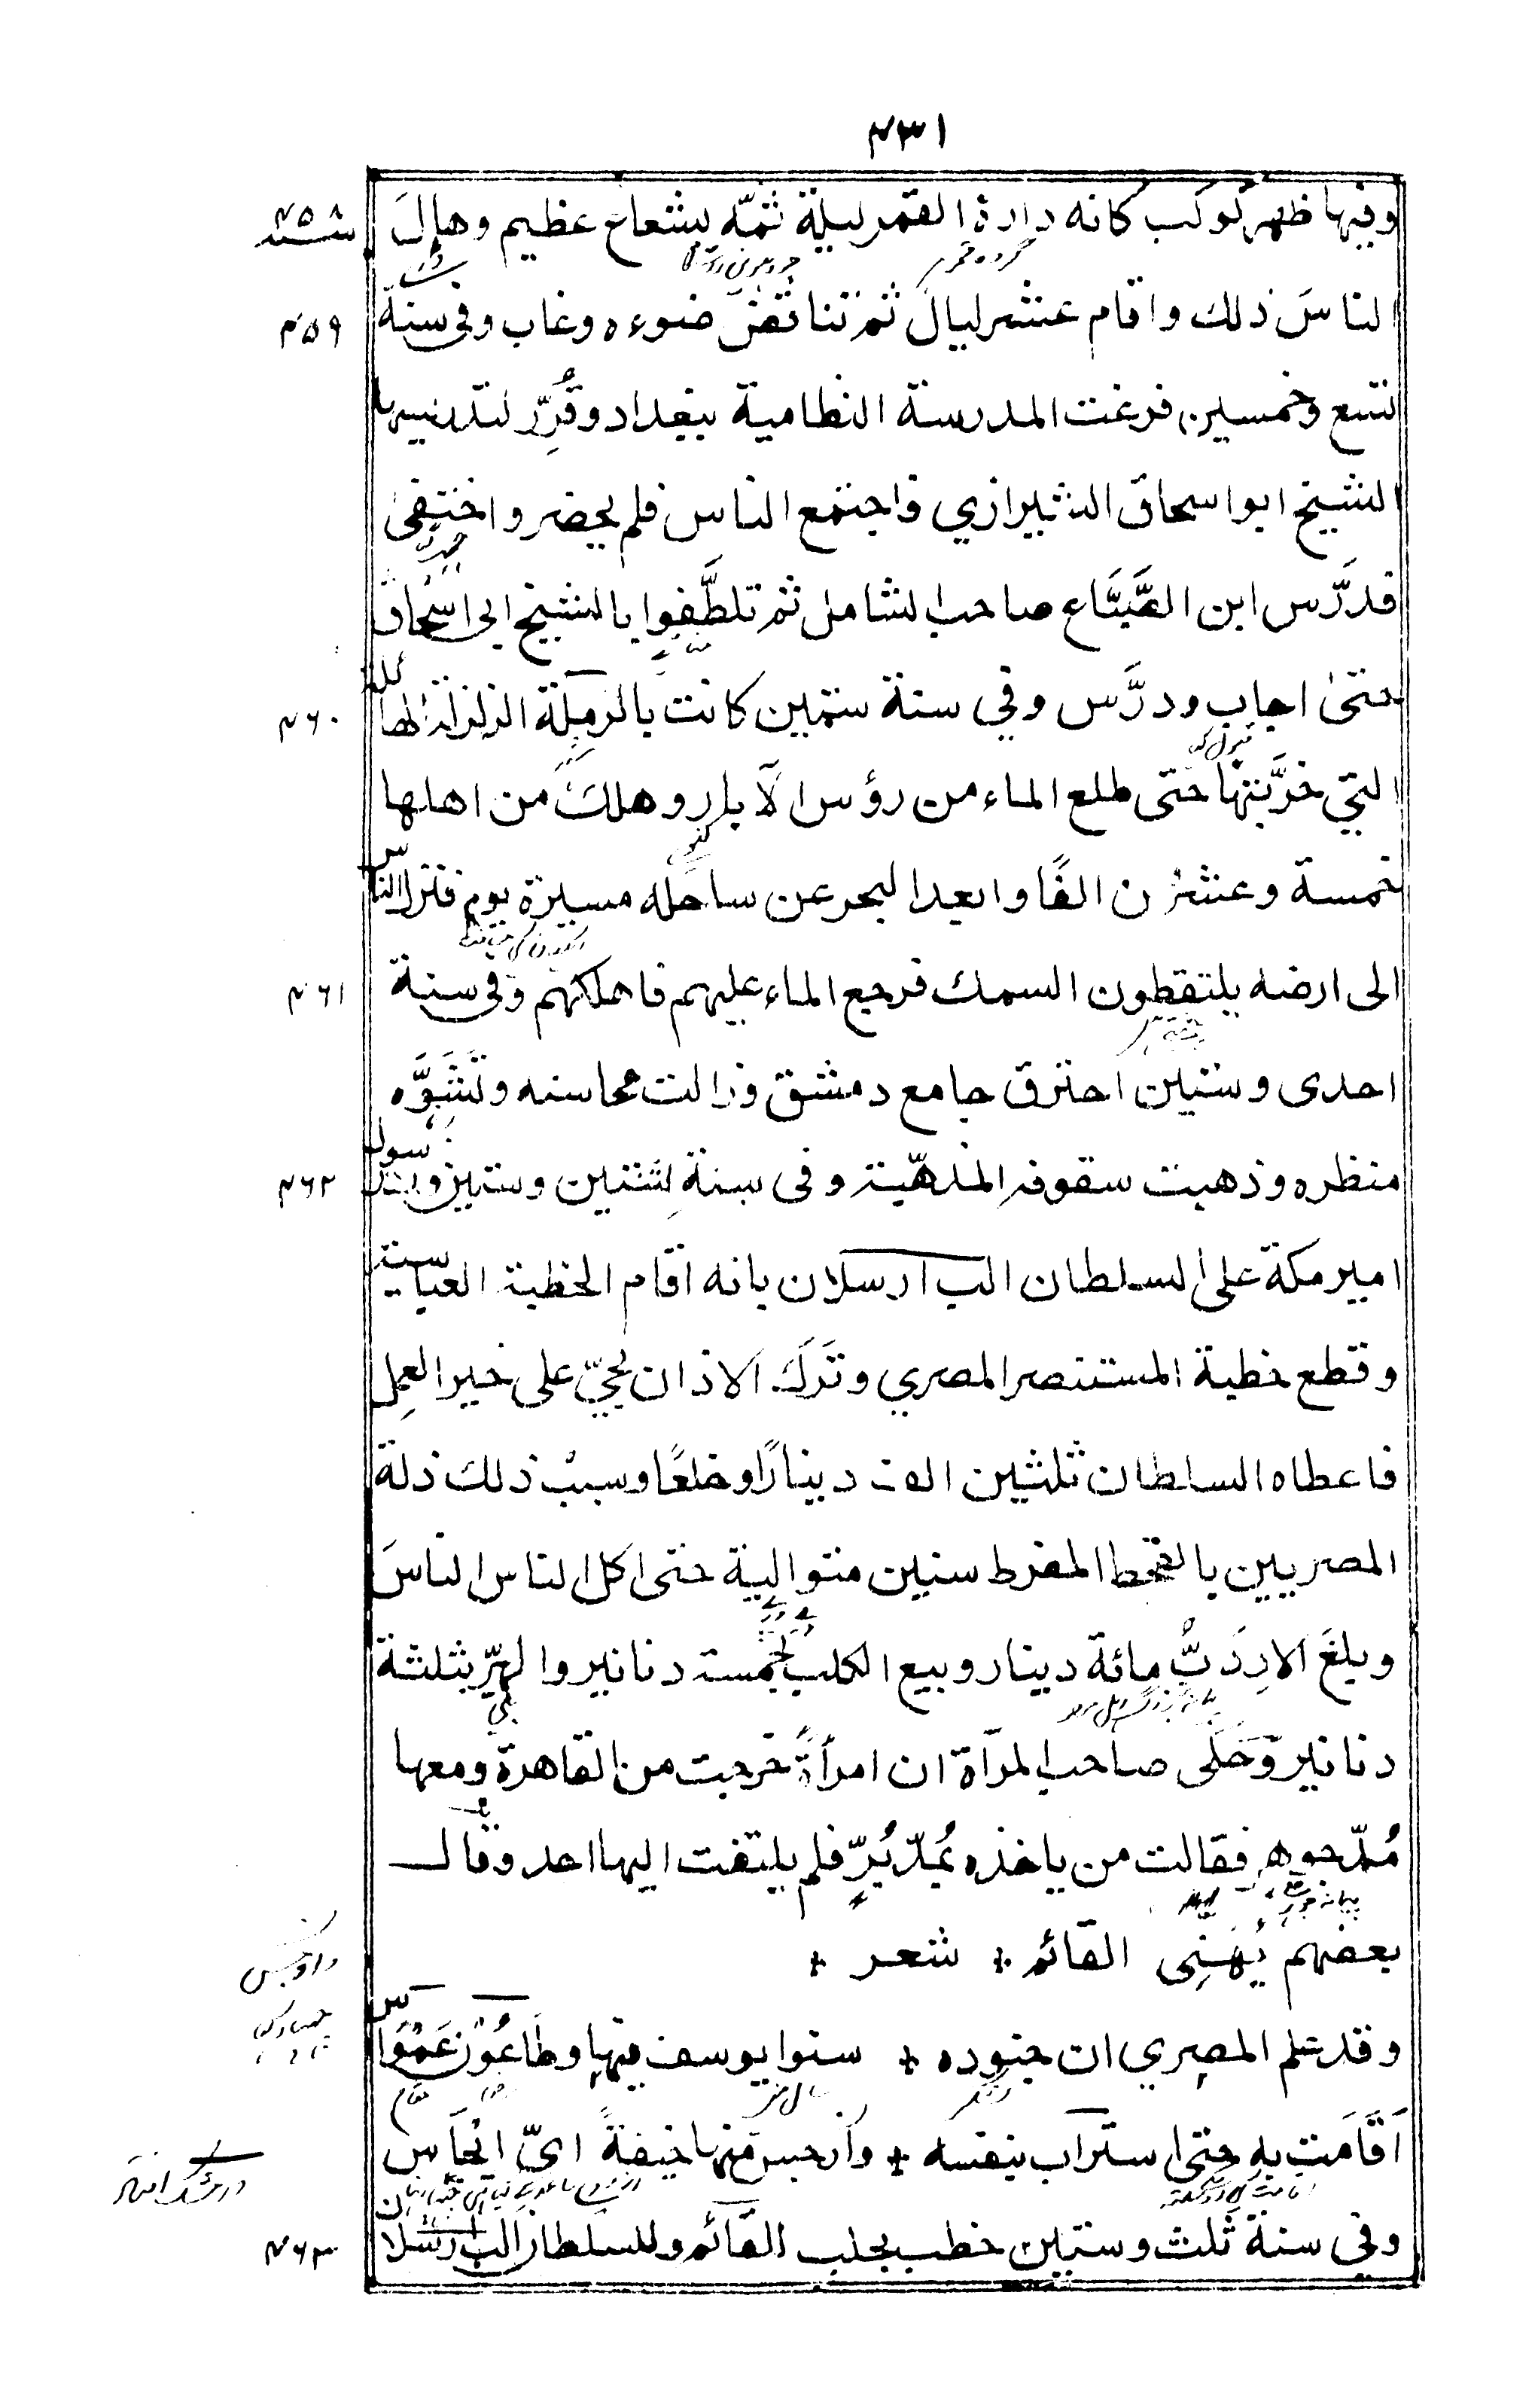 ٤٣١
وفيها ظهر كوكب كانه دارة القمر ليلة تمّه بشعاع عظيم وهالَ
سنة ٤٥٨
الناسَ ذلك واقام عشر ليالَ ثم تناقصَ ضوءه وغاب وفى سنة
٤٥٩
تسع وخمسين فرغت المدرسة النظامية ببغداد وقُرِّر لتدريسها
الشيخ ابو اسحاق الشيرازي فاجتمع الناس فلم يحضر واختفىٰ
فدَرَّس ابن الصَّبَّاع صاحب الشامل ثم تلطَّفوا بالشيخ ابى اسحاق
حتىٰ اجاب ودرَّس وفي سنة ستين كانت بالرملة الزلزلة الهائلة
٤٦٠
التي خرَّبتها حتى طلع الماء من رؤس الآبار وهلكَ من اهلها
خمسة وعشرن الفًا وابعد البحر عن ساحله مسيرة يوم فنزل الناس
الى ارضه يلتقطون السمك فرجع الماء عليهم فاهلكهم وفى سنة
٤٦١
احدى وستين احترق جامع دمشق وزالت محاسنه وتَشَوَّه
منظره وذهبت سقوفه المذهّبة وفى سنةِ اثنتين وستين ورد رسول
٤٦٢
امير مكة على السلطان الب ارسلان بانه اقام الخطبة العباسية
وقطع خطبة المستنصر المصري وتَرَكَ الاذان بحيّ على خير العمِل
فاعطاه السلطان ثلثين الف دينارًا وخلعًا وسبب ذلك ذلة
المصريين بالقحط المفرط سنين متوالية حتى اكل الناس الناسَ
وبلغَ الارِدَبُّ مائة دينار وبيع الكلب بخمسة دنانير والهِرّ بثلثة
دنانير وَحَكَى صاحب المرآة ان امرأةً خرجت من القاهرة ومعها
مُدّ جوهر فقالت من ياخذه بمُدّ بُرٍّ فلم يلتفت اليها احد وقال
بعضهم يُهَنِّى القائم ٭ شعر ٭
وقد علم المصري ان جنوده ٭ سنوا يوسف فيها وطَاعُوْن عَمْوَاس
اَقَامَت به حتى استراب بنفسه ٭ وأوجس منها خيفةً ايّ ايْجَاس
وفي سنة ثلث وستين خطب بحلب القائم وللسلطان الب ارسلان
٤٦٣